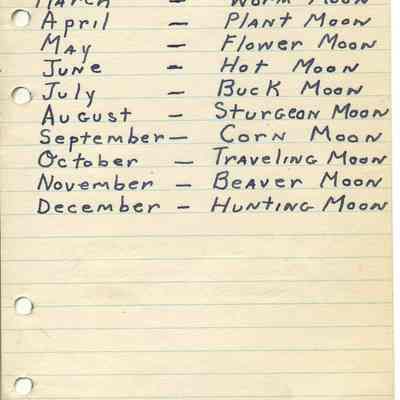 March - Worm Moon
April - Plant Moon
May - Flower Moon
June - Hot Moon
July - Buck Moon
August - Sturgeon Moon
September - Corn Moon
October - Traveling Moon
November - Beaver Moon
December - Hunting Moon